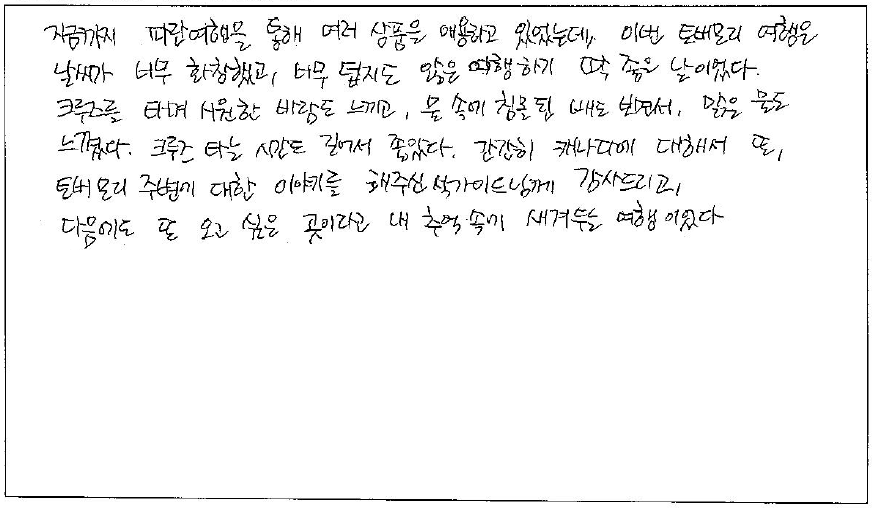 지금까지 파란여행을 통해 여러 상품을 애용하고 있었는데, 이번 토버모리 여행은
날씨가 너무 화창했고, 너무 덥지도 않은 여행하기 딱 좋은 날이었다.
크루즈를 타며 시원한 바람도 느끼고, 물 속에 침몰된 배도 보면서, 맑은 물도
느꼈다. 크루즈 타는 시간도 길어서 좋았다. 간간히 캐나다에 대해서 또,
토버모리 주변에 대한 이야기를 해주신 석가이드님께 감사드리고,
다음에도 또 오고 싶은 곳이라고 내 추억 속에 새겨두는 여행이었다